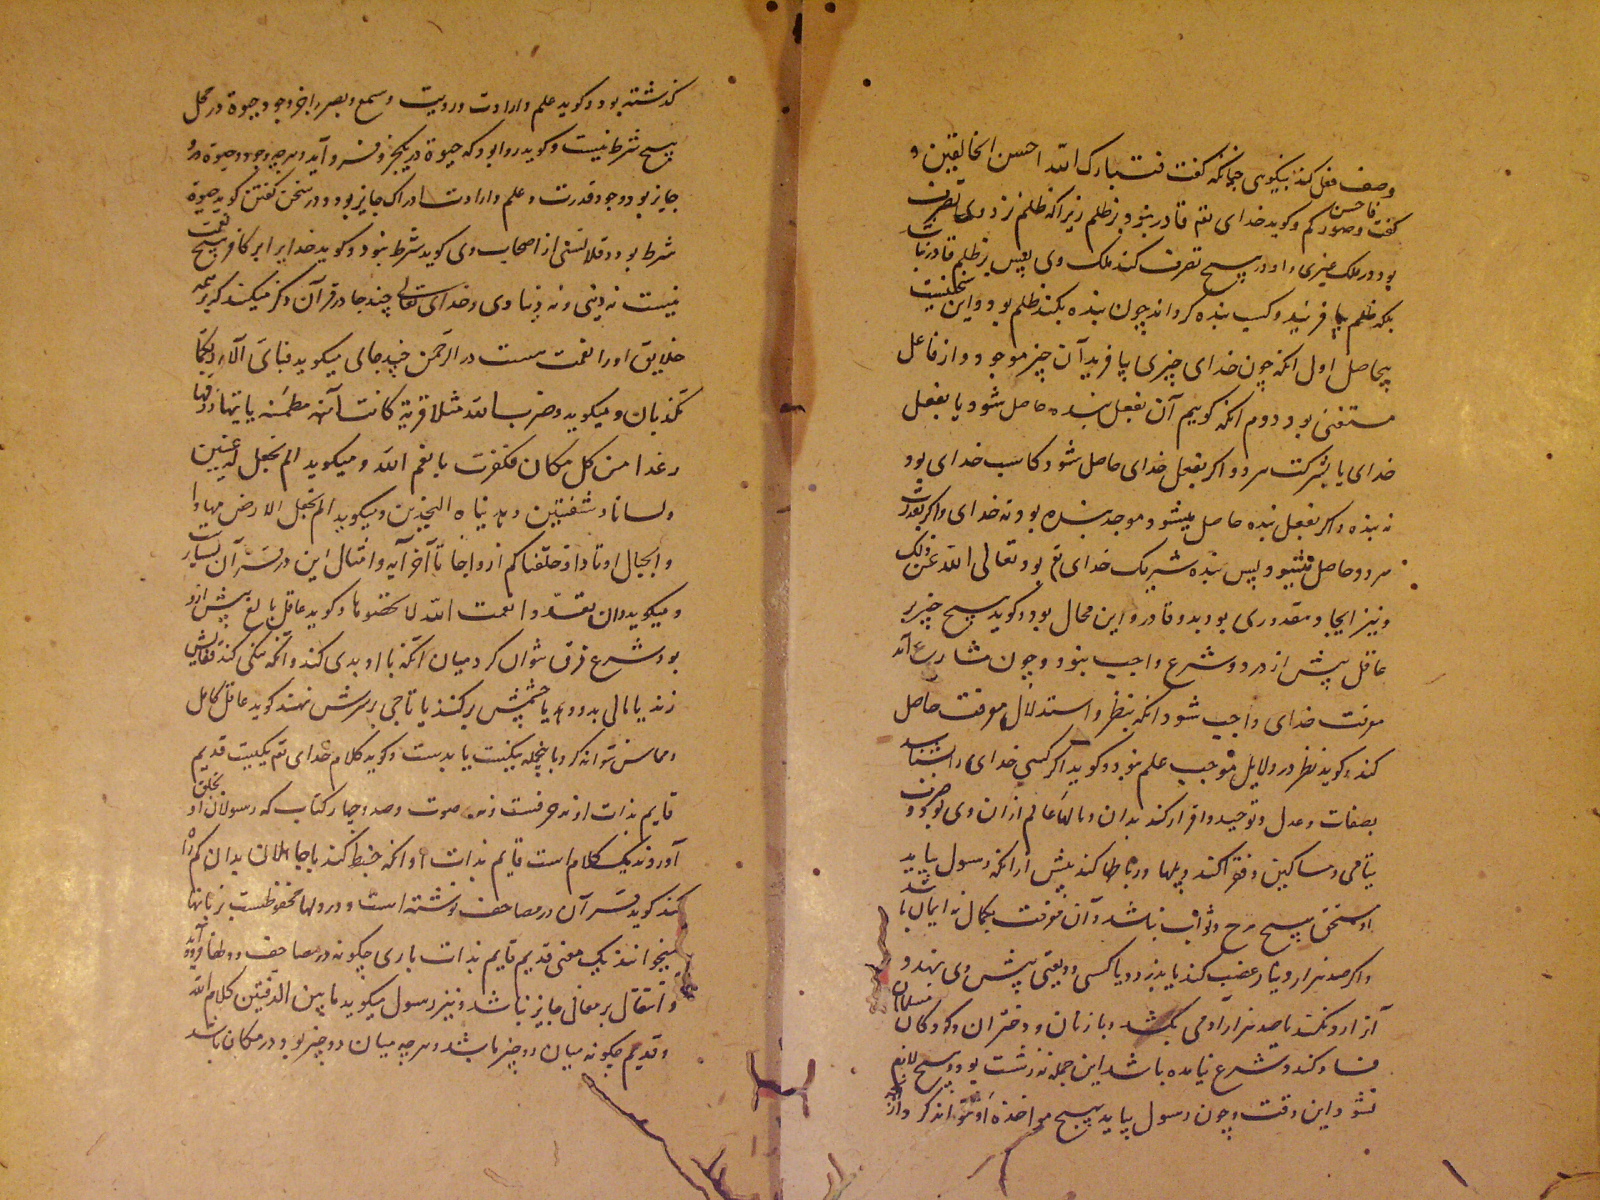 وصف فعل کند بنیکویی چنانکه گفت فتبارک الله احسن الخالقین و
گفت وصورکم فاحسن و گوید خدای تع قادر نبود بر ظلم زیرا که ظلم نزد وی تصرف
بود در ملک غیری و او در هیچ تصرف کند ملک وی پس بر ظلم قادر نباشد
بلکه ظلم بیافریند و کسب بنده گرداند چون بنده بکند ظلم بود و این سخنیست
بیحاصل اول انکه چون خدای چیزی بیافرید آن چیز موجود و از فاعل
مستغنی بود دوم انکه گوییم آن بفعل بنده حاصل شود یا بفعل
خدای یا بشرکت هر دو اگر بفعل خدای حاصل شود کاسب خدای بود
نه بنده و اگر بفعل بنده حاصل میشود موجد بنده بود نه خدای و اگر بقدرت
هر دو حاصل میشود پس بنده شریک خدای تع بود تعالی الله عن ذلک
و نیز ایجاد مقدوری بود بدو قادر و این محال بود و گوید هیچ چیز بر
عاقل پیش از ورود شرع واجب نبود و چون شارع آمد
معرفت خدای واجب شود انکه بنظر و استدلال معرفت حاصل
کند و گوید نظر در دلایل موجب علم نبود و گوید اگر کسی خدای را بشناسد
بصفات و عدل و توحید و اقرار کند بدان و مالها عالم ازان وی بود و صرف
یتامی و مساکین و فقرا کند و پلها و رباطها کند پیش از انکه رسول بیاید
او مستحق هیچ مدح و ثواب نباشد و آن معرفت بکمال نه ایمان باشد
و اگر صد هزار دینار غصب کند یا بدزدد یا کسی ودیعتی پیش وی نهد و
آزار و نکند یا صد هزار آدمی بکشد و با زنان و دختران و کودکان مسلمانان
فساد کند و شرع نیامده باشد این جمله نه زشت بود و هیچ لازم
نشود این وقت و چون رسول بیاید هیچ مواخذه او نتواند کرد و از آنچه
گذشته بود و گوید علم و ارادت و رویت و سمع و بصر را جز وجود حیوة در محل
هیچ شرط نیست و گوید روا بود که حیوة در یک جزو فرو آید و هر چه وجود حیوة درو
جایز بود وجود قدرت و علم و ارادت و ادراک جایز بود و در سخن گفتن گوید حیوة
شرط بود و قلانسی از اصحاب وی گوید شرط نبود و گوید خدایرا بر کافر هیچ نعمت
نیست نه دینی و نه دنیاوی و خدای تعالی چند جا در قرآن ذکر میکند که بر همه
خلایق اورا نعمت هست در الرحمن چند جای میگوید فبای آلاء ربکما
تکذبان و میگوید و ضرب الله مثلا قریة کانت آمنه مطمئنه یاتیها رزقها
رغدا من کل مکان فکفرت بانعم الله و میگوید الم نجعل له عینین
ولسانا و شفتین و هدیناه النجدین و میگوید الم نجعل الارض مهادا
و الجبال اوتادا و خلقناکم ازواجا تا آخر آیه و امثال این در قرآن بسیارست
و میگوید و ان تعدوا نعمت الله لا تحصوها و گوید عاقل بالغ پیش از ورود
شرع فرق نتواند کرد میان آنکه با او بدی کند و آنکه نیکی کند قفایش
زند یا مالی بدو دهد یا چشمش برکند یا تاجی بر سرش نهند گوید عاقل کامل
و گوید کلام خدای تع یکیست قدیم
قایم بذات او نه حرفست و نه صوت و صد و چهار کتاب که رسولان او بخلق
آوردند یک کلام است قایم بذات او انکه خبط کند با جاهلان بدان گم راه
کند گوید قرآن در مصاحف نوشته است و در دلها محفوظست بزبانها
میخوانند یک معنی قدیم قایم بذات باری چگونه در مصاحف و دلها فرود آید
و انتقال بر معانی جایز نباشد و نیز رسول میگوید ما بین الدفتین کلام الله
و قدیم چگونه میان دو چیز باشد و هر چه میان دو چیز بود در مکان باشد